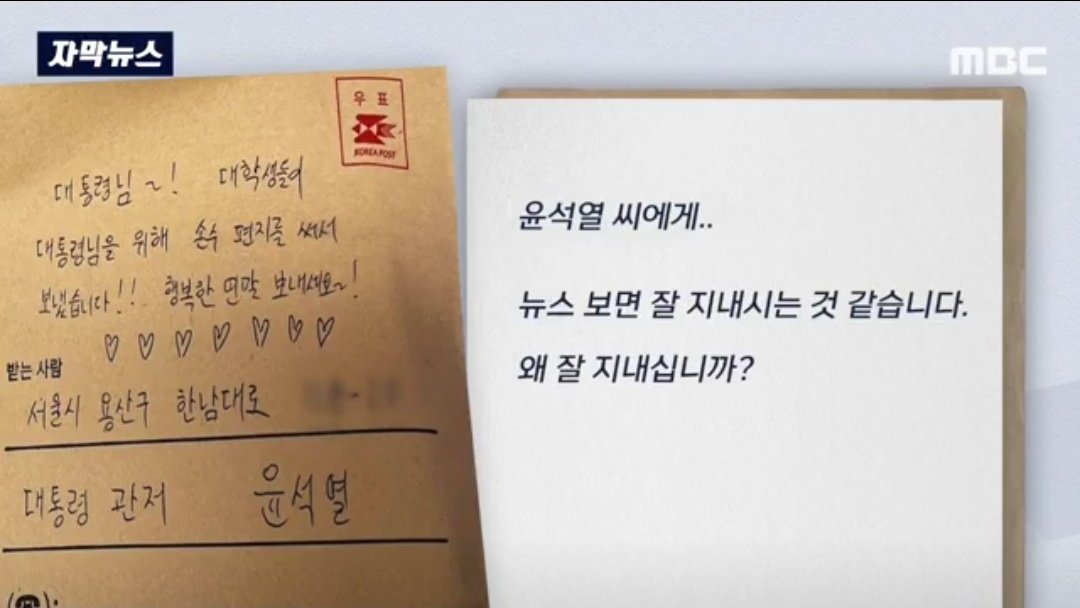 자막뉴스
MBC
우 표
KOREA POST
대통령님~! 대학생들이
대통령님을 위해 손수 편지를 써서
보냈습니다!! 행복한 연말 보내세요~!
♡ ♡ ♡ ♡ ♡ ♡ ♡
받는 사람
서울시 용산구 한남대로
대통령 관저 윤석열
(☎):
윤석열 씨에게..
뉴스 보면 잘 지내시는 것 같습니다.
왜 잘 지내십니까?